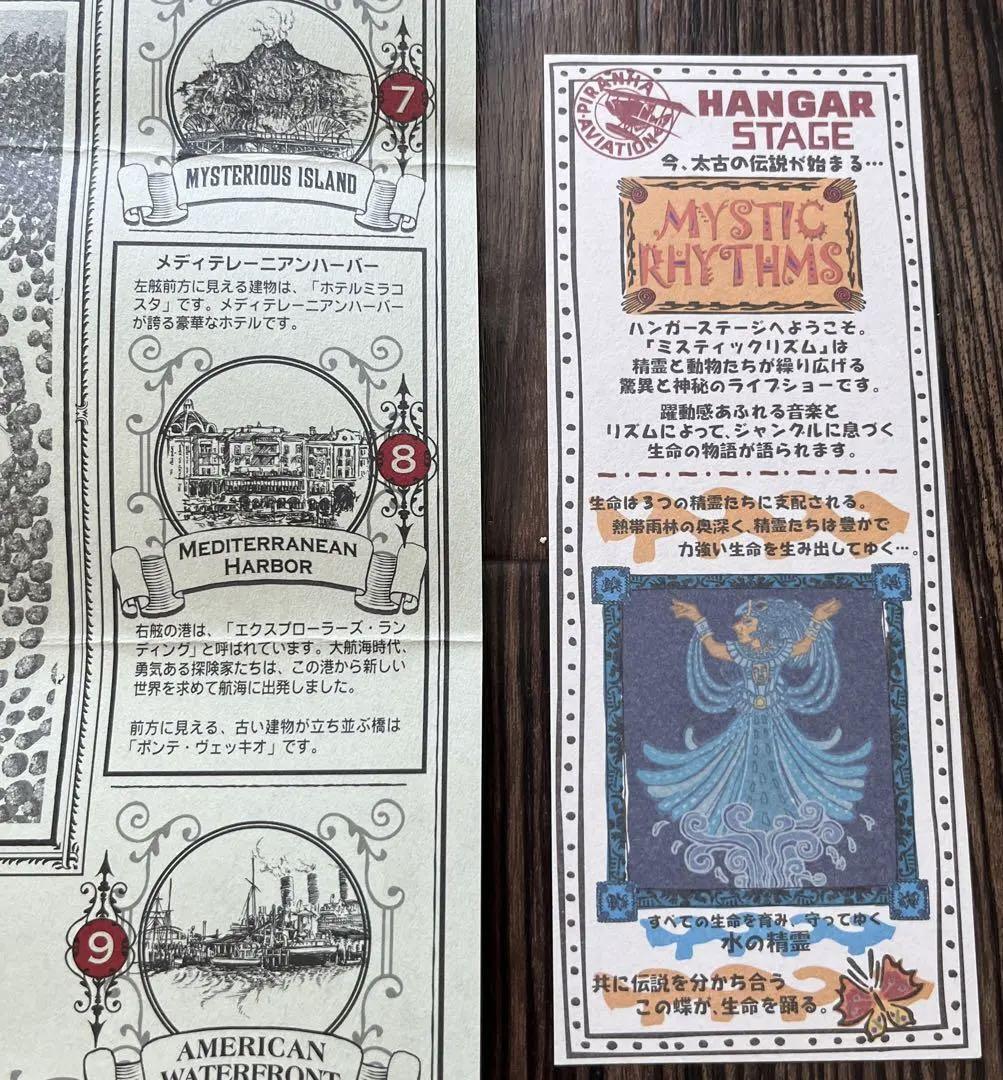 7
MYSTERIOUS ISLAND
メディテレーニアンハーバー
左舷前方に見える建物は、「ホテルミラコ
スタ」です。メディテレーニアンハーバー
が誇る豪華なホテルです。
8
MEDITERRANEAN
HARBOR
右舷の港は、「エクスプローラーズ・ラン
ディング」と呼ばれています。大航海時代、
勇気ある探険家たちは、この港から新しい
世界を求めて航海に出発しました。
前方に見える、古い建物が立ち並ぶ橋は
「ポンテ・ヴェッキオ」です。
9
AMERICAN
WATERFRONT
PIRANHA
AVIATION
HANGAR
STAGE
今、太古の伝説が始まる…
MYSTIC
RHYTHMS
ハンガーステージへようこそ。
『ミスティックリズム』は
精霊と動物たちが繰り広げる
驚異と神秘のライブショーです。
躍動感あふれる音楽と
リズムによって、ジャングルに息づく
生命の物語が語られます。
生命は3つの精霊たちに支配される。
熱帯雨林の奥深く、精霊たちは豊かで
力強い生命を生み出してゆく…。
すべての生命を育み、守ってゆく
水の精霊
共に伝説を分かち合う
この蝶が、生命を踊る。